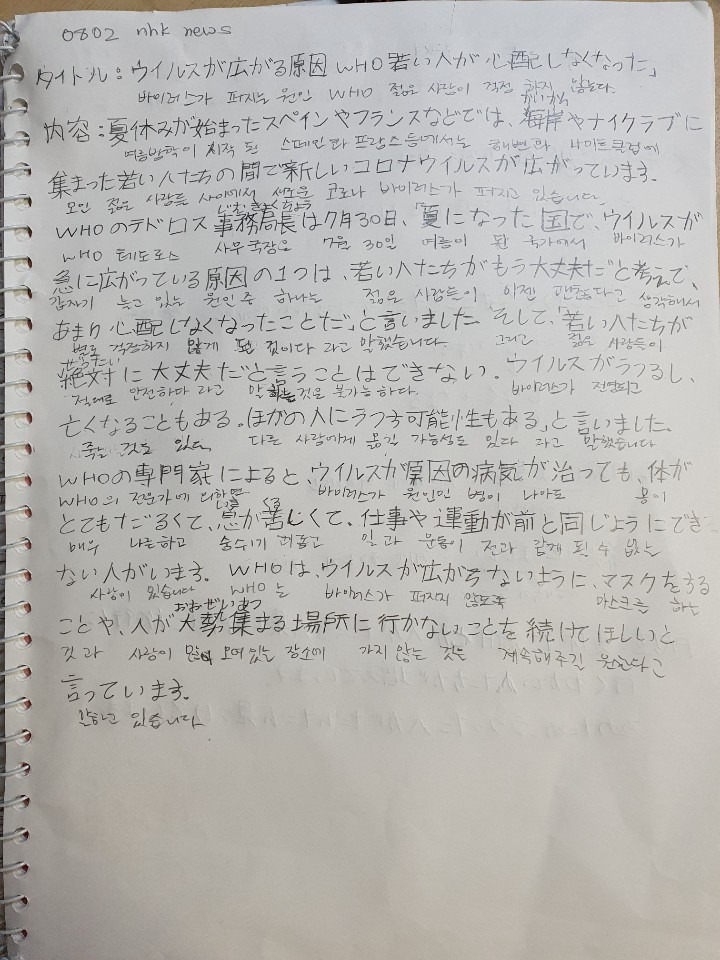 0802 nhk news
タイトル：ウイルスが広がる原因 WHO 若い人が心配しなくなった」
바이러스가 퍼지는 원인 WHO 젊은 사람이 걱정 하지 않는다
かいがん
内容：夏休みが始まったスペインやフランスなどでは、海岸やナイクラブに
여름방학이 시작 된 스페인과 프랑스 등에서는 해변과 나이트클럽에
集まった若い人たちの間で新しいコロナウイルスが広がっています。
모인 젊은 사람들 사이에서 새로운 코로나 바이러스가 퍼지고 있습니다.
じむきょくちょう
WHOのテドロス事務局長は7月30日、「夏になった国で、ウイルスが
WHO 테도로스 사무국장은 7월 30일 여름이 된 국가에서 바이러스가
急に広がっている原因の1つは、若い人たちがもう大丈夫だと考えて、
갑자기 늘고 있는 원인중 하나는 젊은 사람들이 이젠 괜찮다고 생각해서
あまり心配しなくなったことだ」と言いました。そして、「若い人たちが
별로 걱정하지 않게 된 것이다 라고 말했습니다. 그리고 젊은 사람들이
ぜったい
絶対に大丈夫だと言うことはできない。ウイルスがうつるし、
절대로 안전하다 라고 말하는 것은 불가능하다. 바이러스가 전염되고
亡くなることもある。ほかの人にうつす可能性もある」と言いました。
죽는 것도 있다. 다른 사람에게 옮길 가능성도 있다 라고 말했습니다
WHOの専門家によると、ウイルスが原因の病気が治っても、体が
WHO의 전문가에 의하면 바이러스가 원인인 병이 나아도 몸이
いき くる
とてもだるくて、息が苦しくて、仕事や運動が前と同じようにでき
매우 나른하고 숨쉬기 괴롭고 일과 운동이 전과 같게 될 수 없는
ない人がいます。WHOは、ウイルスが広がらないように、マスクをする
사람이 있습니다 WHO는 바이러스가 퍼지지 않도록 마스크를 하는
おおぜいあつ
ことや、人が大勢集まる場所に行かないことを続けてほしいと
것과 사람이 많이 모여있는 장소에 가지 않는 것은 계속해주길 원한다고
言っています。
말하고 있습니다.